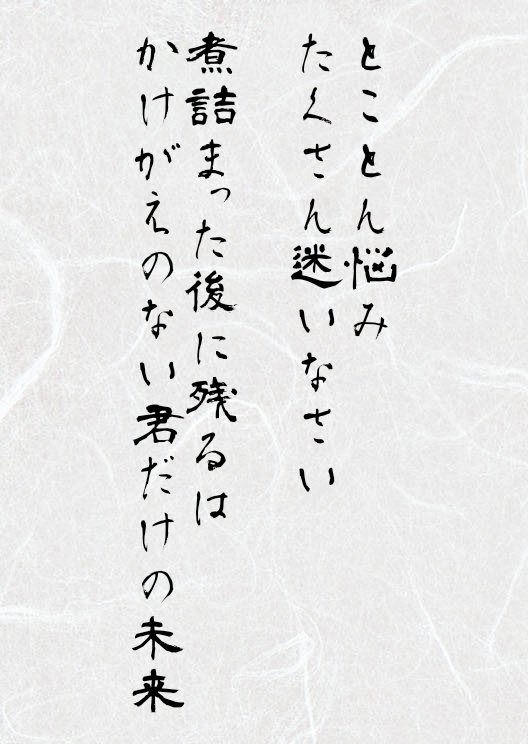 とことん悩み
たくさん迷いなさい
煮詰まった後に残るは
かけがえのない君だけの未来